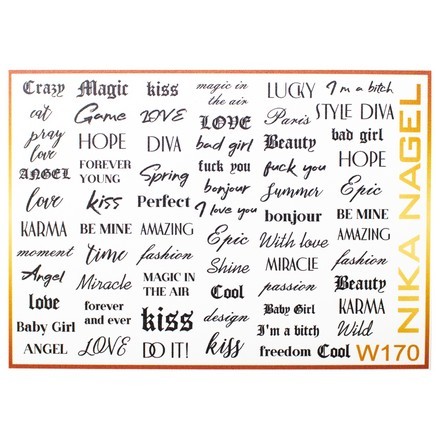 Crazy
eat
pray
love
ANGEL
love
KARMA
moment
Angel
love
Baby Girl
ANGEL
Magic
Game
HOPE
FOREVER
YOUNG
kiss
BE MINE
time
Miracle
forever
and ever
LOVE
kiss
LOVE
DIVA
Spring
Perfect
AMAZING
fashion
MAGIC IN
THE AIR
kiss
DO IT!
magic in
the air
LOVE
bad girl
fuck you
bonjour
I love you
Epic
Shine
Cool
design
kiss
LUCKY
Paris
Beauty
fuck you
Summer
bonjour
With love
MIRACLE
passion
Baby Girl
I'm a bitch
freedom
I'm a bitch
STYLE DIVA
bad girl
HOPE
Epic
BE MINE
AMAZING
fashion
Beauty
KARMA
Wild
Cool
W170
NIKA NAGEL